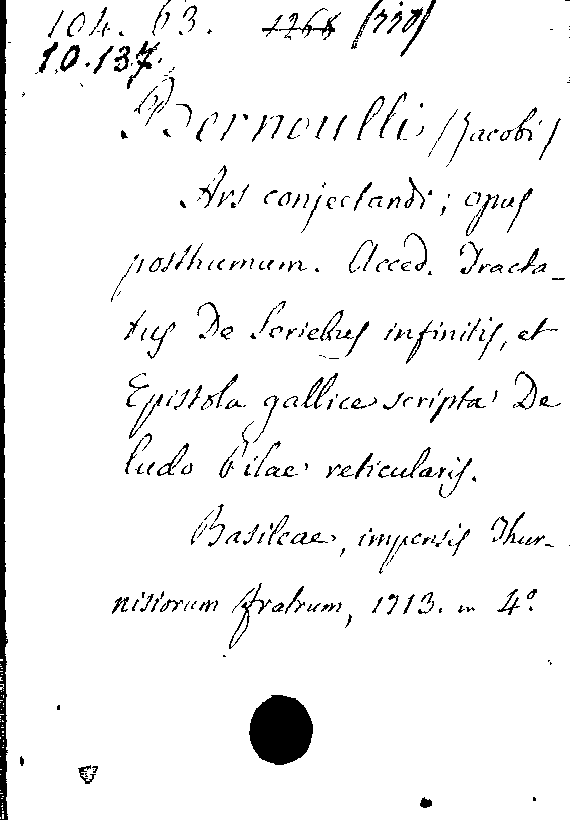 104. 63. 1268 (330)
10.137.
Bernoulli (Jacobi)
Ars conjectandi; opus
posthumum. Acced. Tracta-
tus De Seriebus infinitis, et
Epistola gallice scripta De
ludo Pilae reticularis.
Basileae, impensis Thur-
nisiorum fratrum, 1713. in 4°